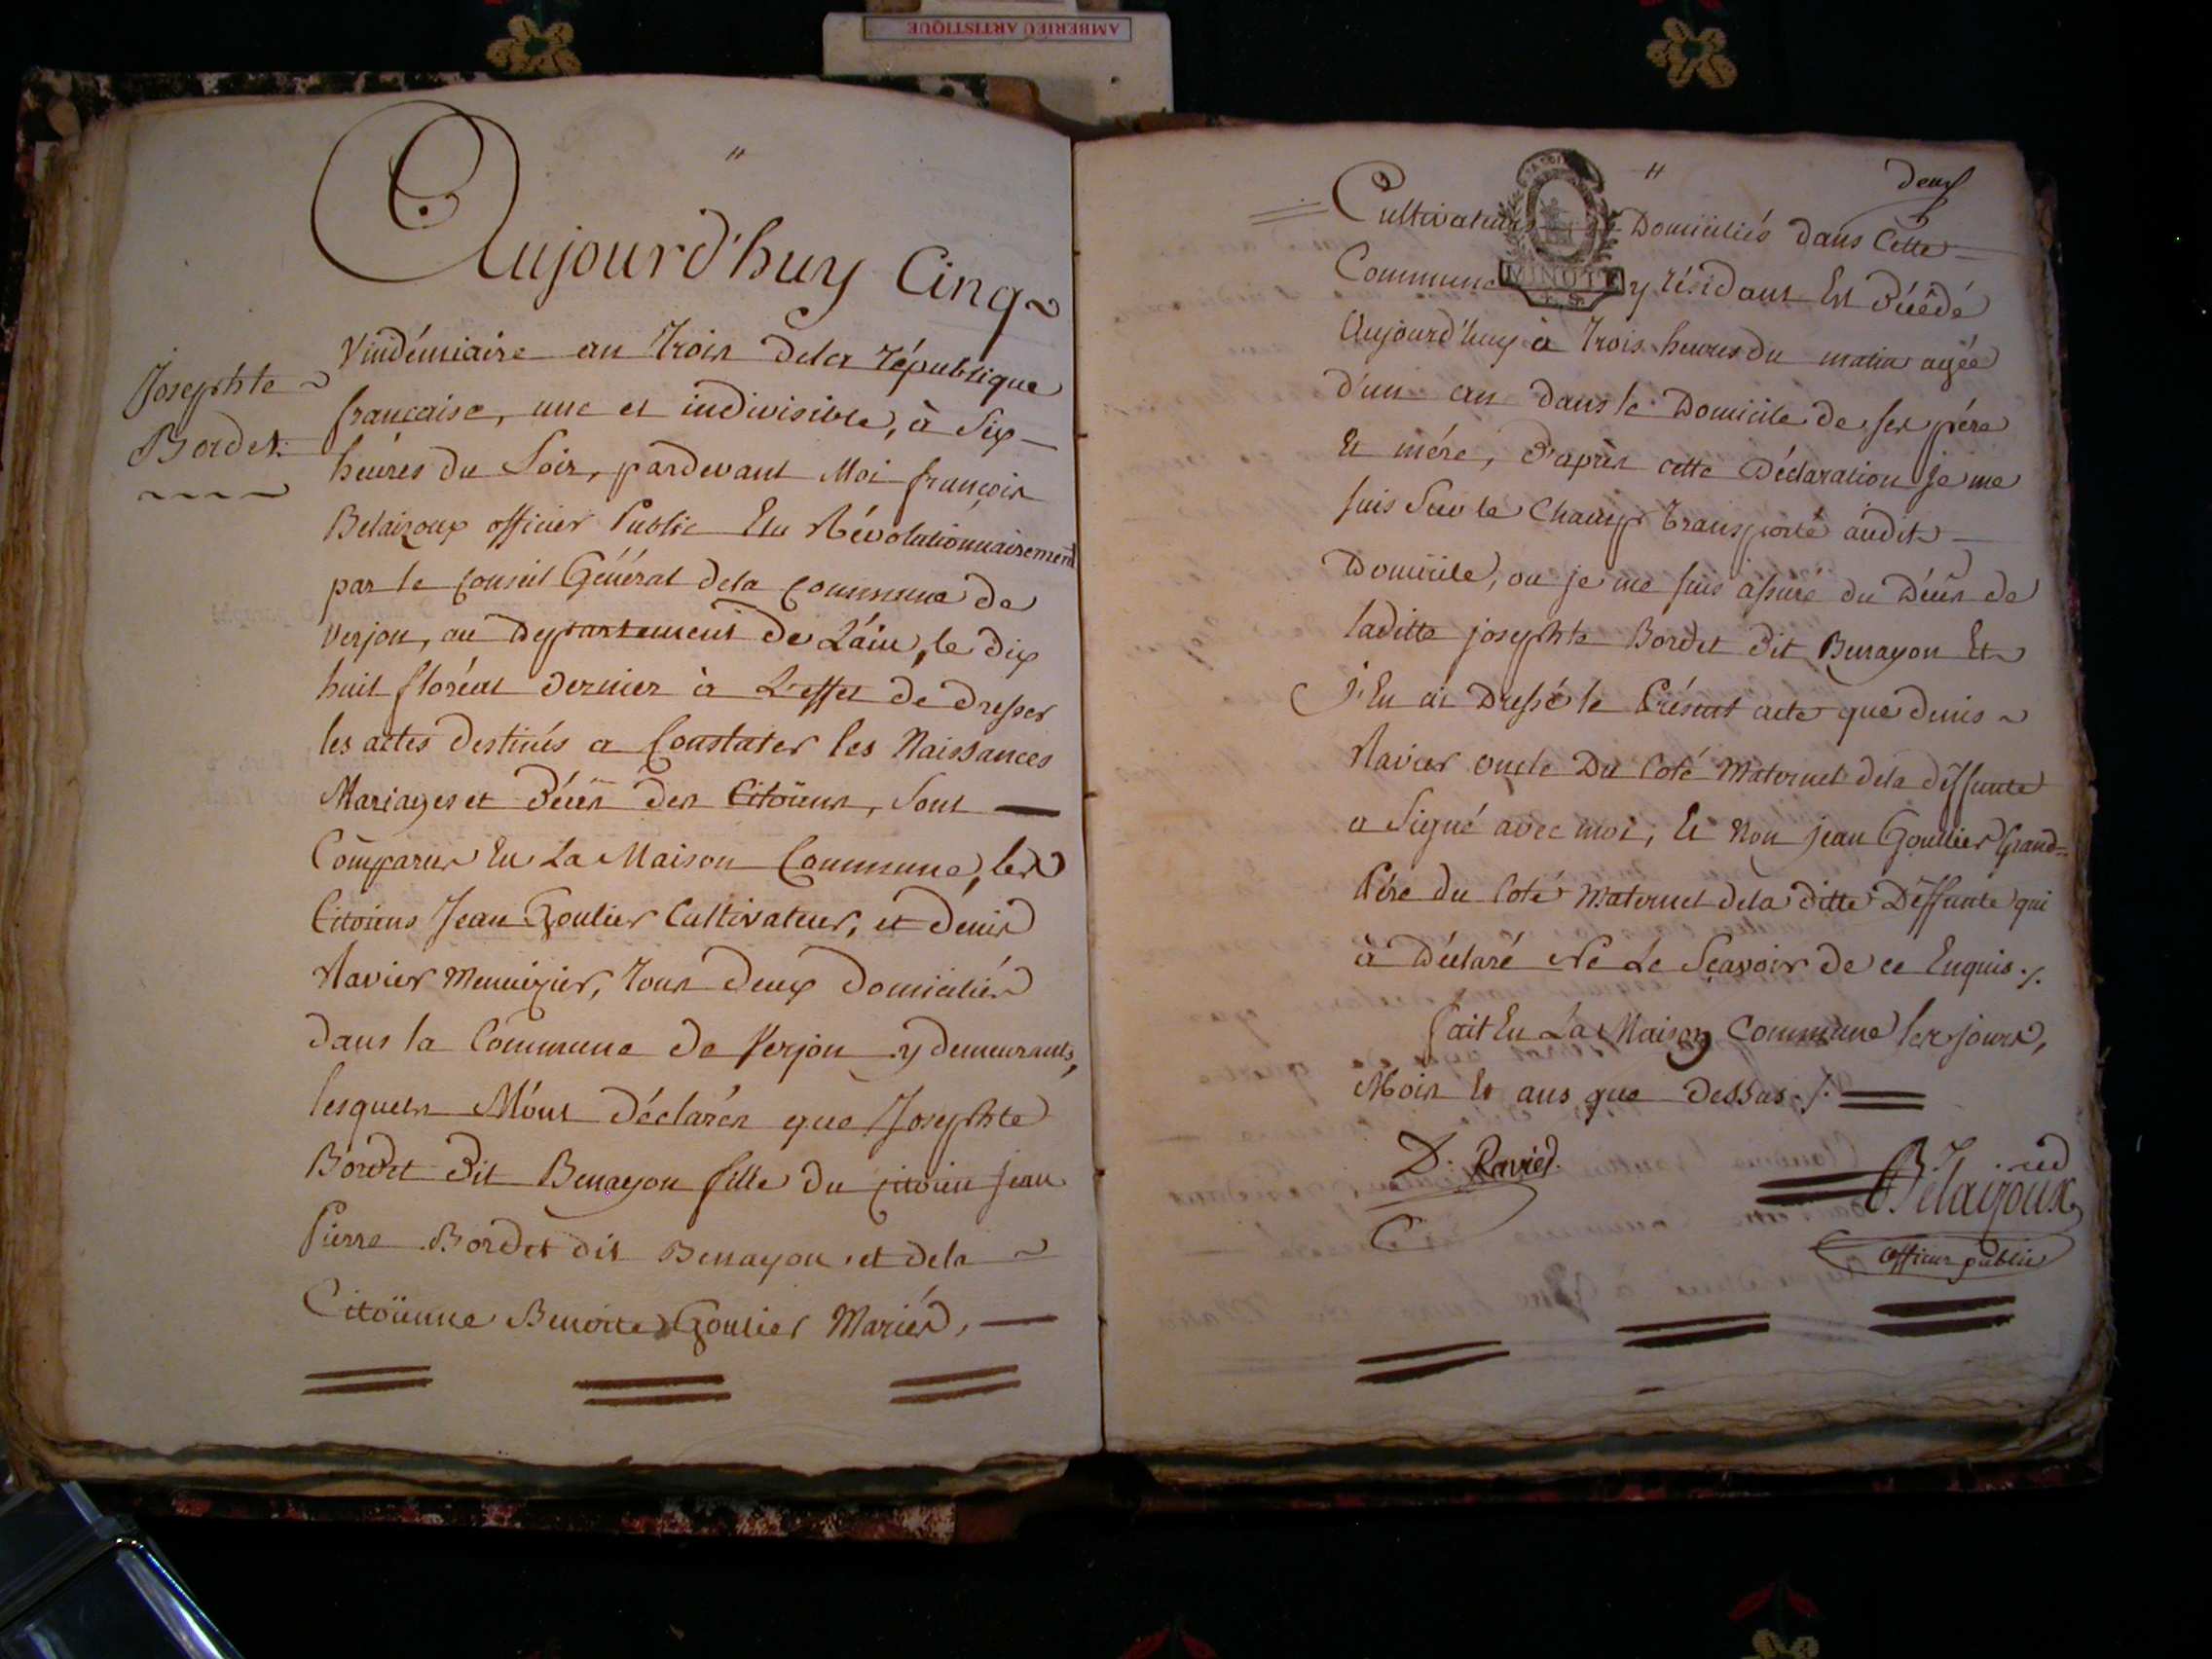 AMBERIEU ARTISTIQUE
Aujourd'huy Cinq
Josephte
Bordet
Vindémiaire an trois dela république
française, une et indivisible, à Six
heures du Soir, pardevant Moi françois
Belaizoux officier Public Elu Révolutionnairement
par le Conseil Général dela Commune de
Verjon, au Departement de L'ain, le dix
huit floréal dernier à L'effet de dresser
les actes destinés a Constater les Naissances
Mariages et Décès des Citoïens, Sont
Comparus En La Maison Commune, les
Citoiens Jean Goulier Cultivateur, et denis
Ravier Menuizier, tous deux domiciliés
dans la Commune de Verjon y demeurants,
lesquels M'ont déclarés que Josephte
Bordet dit Benayon fille du citoien Jean
Pierre Bordet dit Benayon et dela
Citoïenne Benoite Goulier Mariés,
deux
Cultivateurs Domiciliés dans Cette
MINUTE
Commune y résidant Est Décédé
Aujourd'huy à trois heures du matin agée
d'un an dans le Domicile de ses père
Et mére, d'après cette Déclaration je me
suis Sur le Champ transporté audit
Domicile, ou je me suis assuré du Décès de
laditte josephte Bordet dit Benayon Et
J'En ai Dressé le Présent acte que denis
Ravier oncle Du Coté Maternel dela deffunte
a Signé avec moi, Et Non jean Goullier Grand=
Pére du Coté Maternel dela ditte Deffunte qui
à Déclaré Ne Le Sçavoir de ce Enquis ./.
fait En La Maison Commune les jours,
Mois Et ans que dessus ./.
D. Ravier.
Belaizoux
officier public